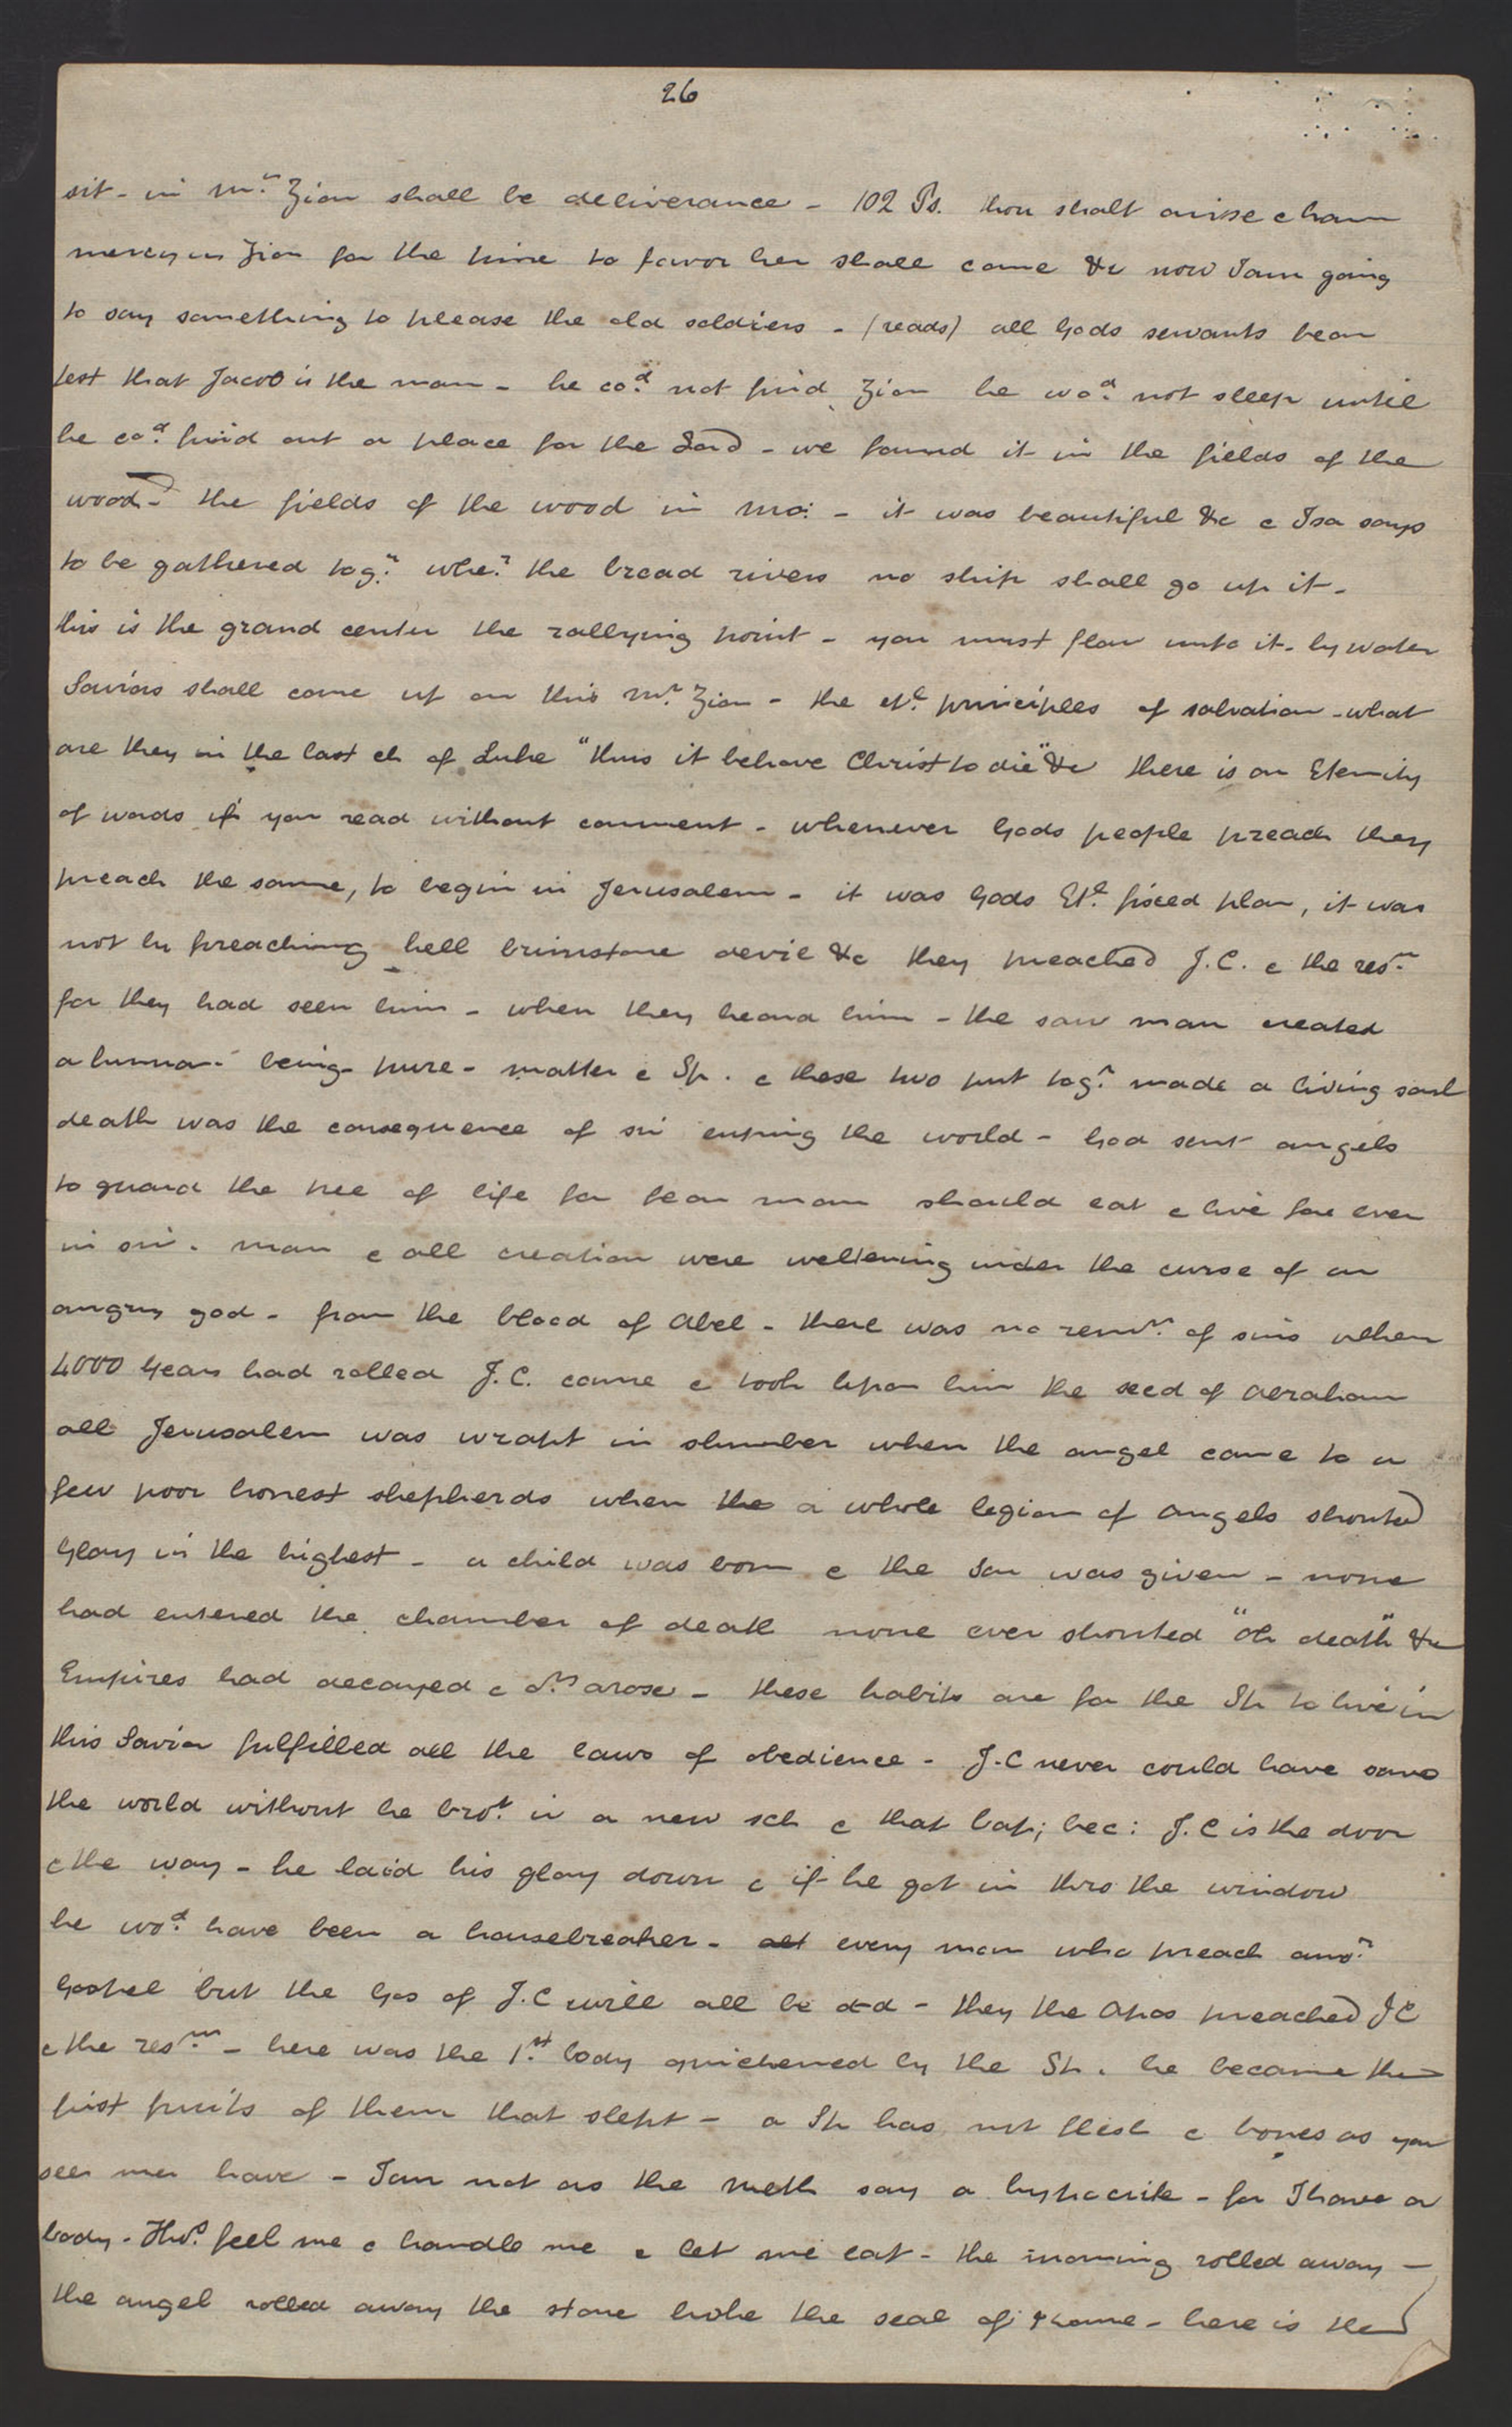 26
sit - in Mt. Zion shall be deliverance - 102 Ps. thou shalt arise & have
mercy on Zion for the time to favor her shall come &c now I am going
to say something to please the old soldiers - (reads) all Gods servants bear
test that Jacob is the man - he cod. not find Zion he wod. not sleep until
he cod. find out a place for the Lord - we found it in the fields of the
wood - the fields of the wood in Mo: - it was beautiful &c & Isa says
to be gathered togr. wher. the broad rivers no ship shall go up it -
this is the grand center the rallying point - you must flow unto it - by water
Saviors shall come up on this Mt. Zion - the etl. principles of salvation - what
are they in the last ch of Luke "thus it behove Christ to die" &c there is an Eternity
of words if you read without comment - whenever Gods people preach they
preach the same, to begin in Jerusalem - it was Gods Etl. fixed plan, it was
not by preaching hell brimstone devil &c they preached J.C. & the resn.
for they had seen him - when they heard him - the saw man created
a human being - pure - matter & Sp. & these two put togr. made a living soul
death was the consequence of sin entring the world - God sent angels
to guard the tree of life for fear man should eat & live for ever
in sin. man & all creation were weltering under the curse of an
angry god - from the blood of Abel - there was no remn. of sins when
4000 years had rolled J.C. came & took upon him the seed of Abraham
all Jerusalem was wrapt in slumber when the angel came to a
few poor honest shepherds when the a whole legion of angels shouted
Glory in the highest - a child was born & the Son was given - none
had entered the chamber of death none ever shouted "Oh death" &c
Empires had decayed & ors arose - these habits are for the Sp to live in
this Savior fulfilled all the laws of obedience - J.C never could have save
the world without he brot. in a new sch & that bap; bec: J.C is the door
& the way - he laid his glory down & if he got in thro the window
he wod. have been a housebreaker - all every man who preach anor.
Gospel but the Gos of J.C will all be d-d - they the Apos preached J C
& the resn. - here was the 1st. body quickened by the Sp. he became the
first fruits of them that slept - a Sp has not flesh & bones as you
see me have - I am not as the Meth say a hypocrite - for I have a
body - Thos. feel me & handle me & let me eat - the morning rolled away -
the angel rolled away the stone broke the seal of Rome - here is the